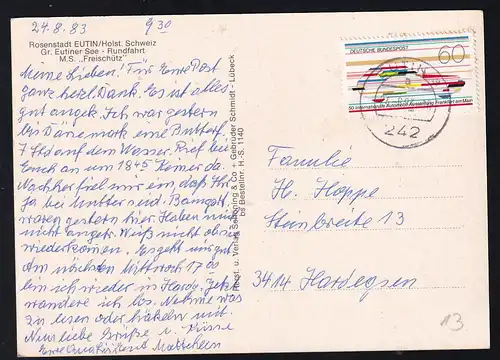 24.8.83 9 30
Rosenstadt EUTIN/Holst. Schweiz
Gr. Eutiner See - Rundfahrt
M.S. „Freischütz"
Meine Lieben! Für Eure Post
ganz herzl. Dank. Es ist alles
gut angek. Ich war gestern
bis Dänemark eine Butterf.
7 Std auf dem Wasser. Rief bei
Euch an um 1845 Keiner da.
Nachher fiel mir ein, daß Ihr
ja bei Mutter seid.
waren gestern hier Haben mich
nicht angetr. Weiß nicht ob sie
wiederkommen. Es geht uns gut
Am nächsten Mittwoch 17 00
bin ich wieder in Hardg. Jetzt
wandere ich los. Nehme was
zu lesen oder häkeln mit.
Nun liebe Grüße u. Küsse
Eure
Herst. u. Verlag Schöning & Co + Gebrüder Schmidt - Lübeck
bs Bestellnr. H.-S. 1140
DEUTSCHE BUNDESPOST
60
50. Internationale Automobil-Ausstellung Frankfurt am Main
242
Familie
H. Hoppe
Steinbreite 13
3414 Hardegsen
13